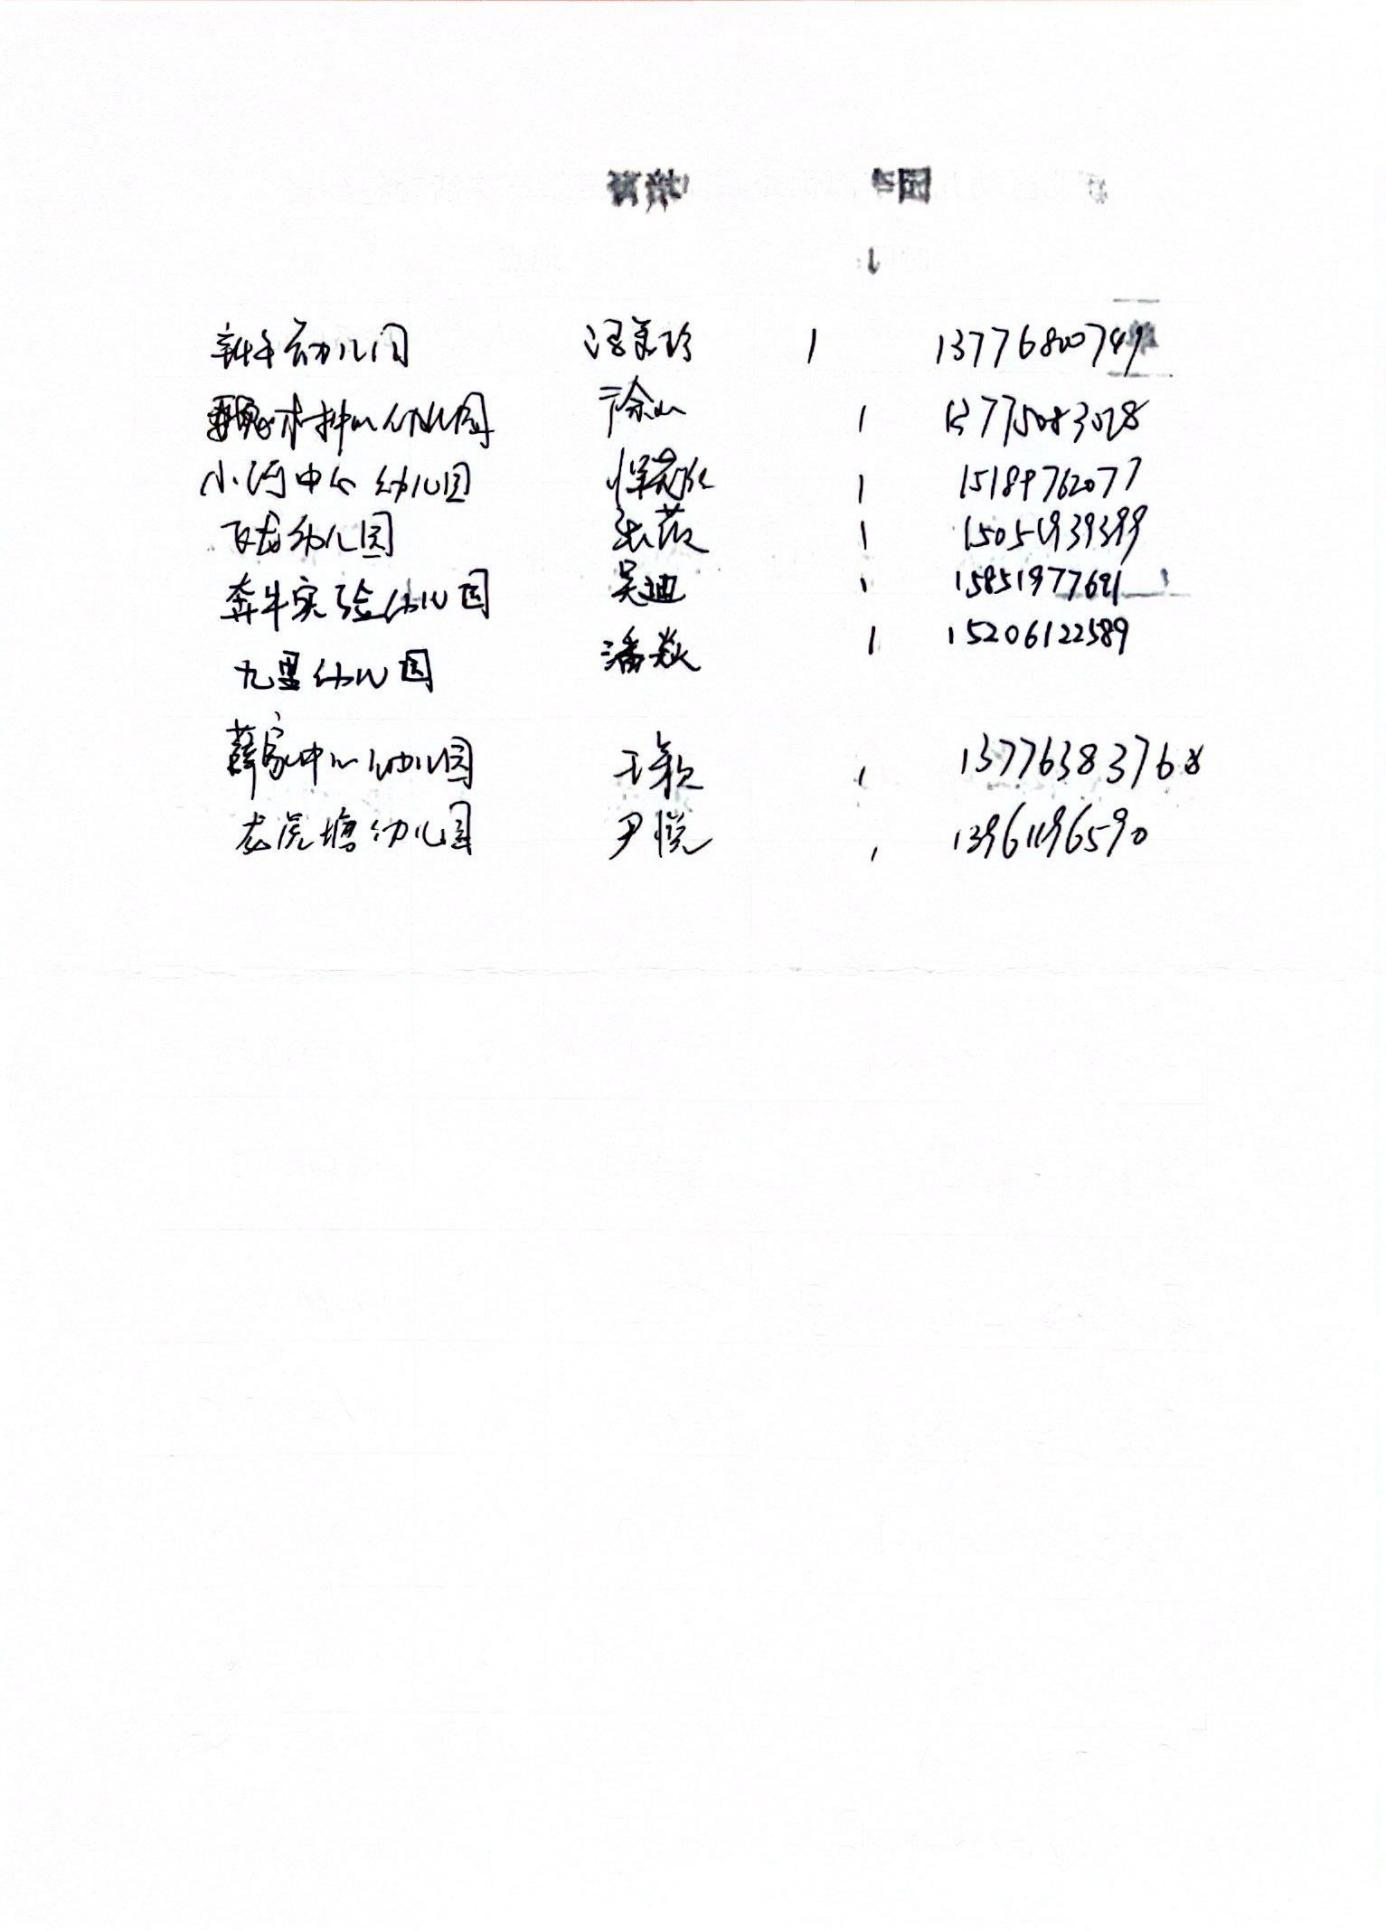 幼儿园 1 13776800741
魏村中心幼儿园 徐 1 13775083028
小河中心幼儿园 恽 1 15189762077
飞龙幼儿园 张薇 1 15051939399
奔牛实验幼儿园 吴迪 1 15851977621
九里幼儿园 潘焱 1 15206122589
薛家中心幼儿园 王颖 1 13776383768
龙虎塘幼儿园 尹悦 1 13961196590